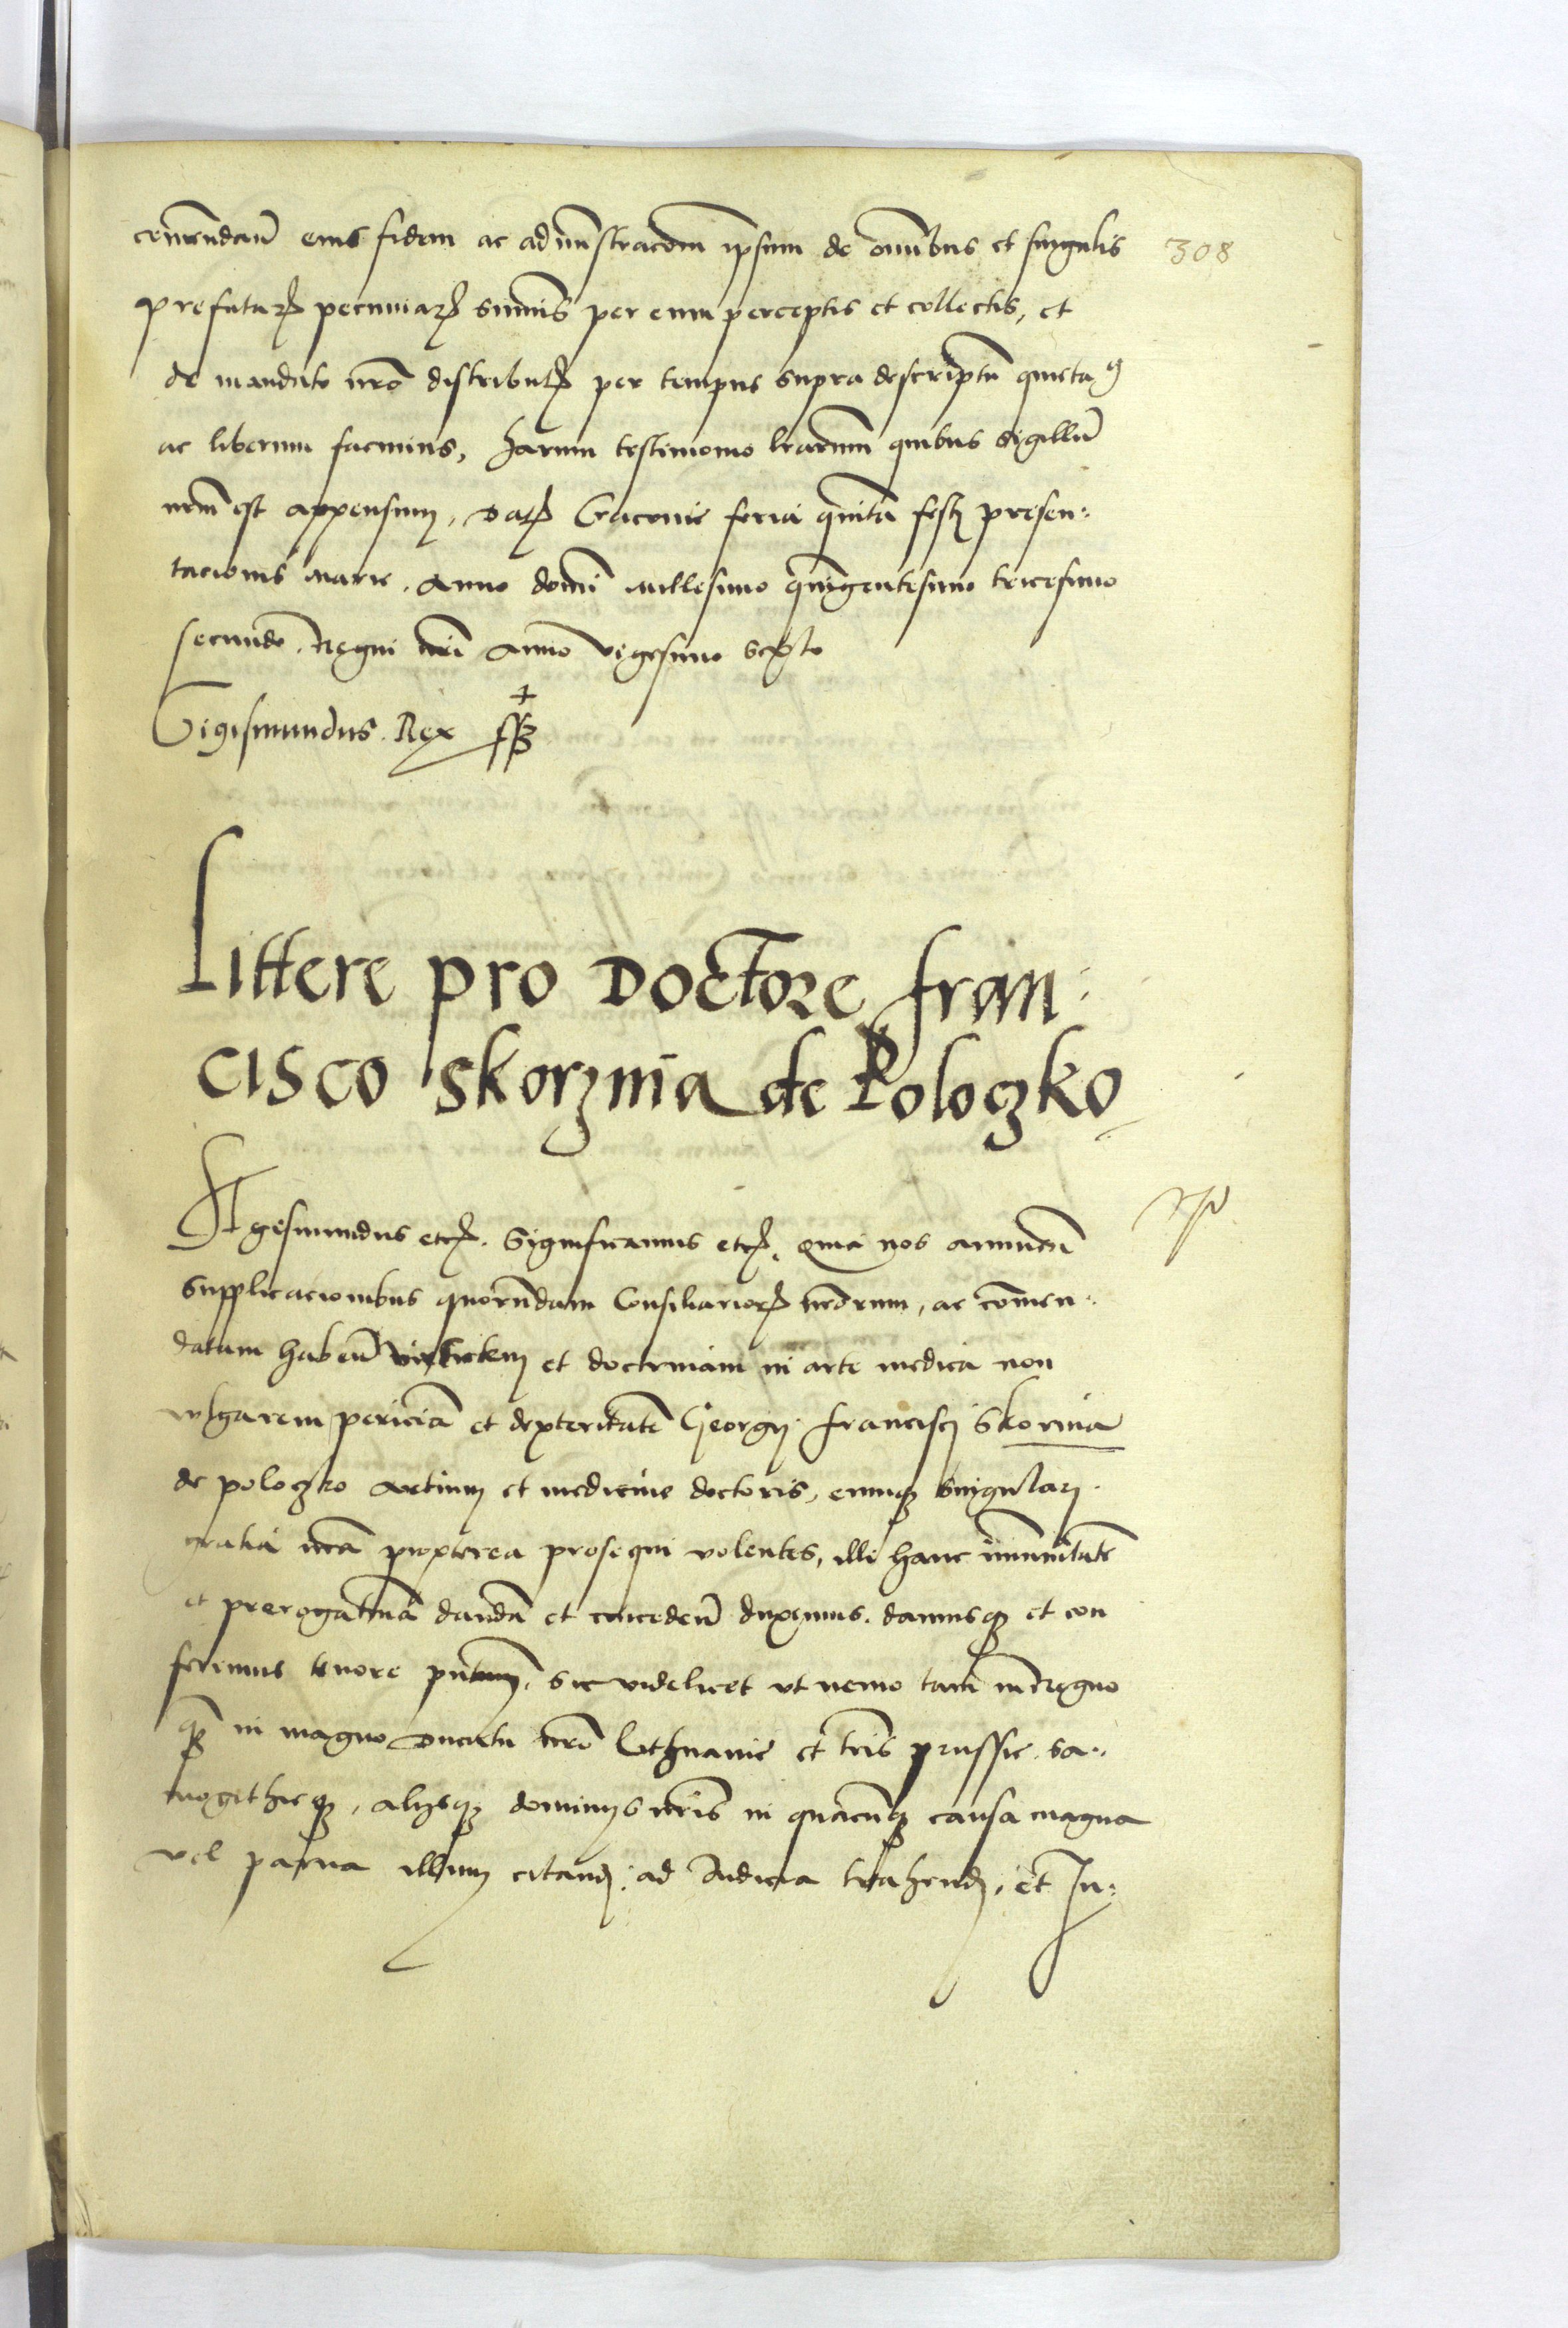 comendan eius fidem ac administracom ipsum de omibus et singulis
308
prefatarz pecuniarz sumis per eum perceptis et collectis, et
de mandato nro distributz per tempus supra descriptu quieta9
ac liberum facimus, harum testimonio lrarum quibus sigillu
nrm est appensum, Datz Cracovie feria quinta festi presen:
tacionis Marie. Anno domi millesimo quingentesimo tricesimo
secundo. Regni nri anno vigesimo sexto
Sigismundus. Rex sszt
Littere pro Doctore fran:
cisco skorznia de Poloczko
Sigesmundus etcz. Significamus etcz. Quia nos annuen
supplicacionibus quorundam Consiliariorz nrorum, ac comen:
datam haben virtutem et doctrinam in arte medica non
vulgarem periciã et dexteritatẽ Georgij francisci Skorina
de poloczko artium et medicine doctoris, eumqz singulari.
gratia nra propterea prosequi volentes, illi hanc imunitatẽ
et prerogatiuã dandã et conceden duximus. damusqz et con
ferimus tenore pntium, sic videlicet vt nemo tam in Regno
qz in magno Ducatu nro Lithuanie et tris prussie. Sa:
mogithieqz, alijsqz dominijs nris in quacunqz causa magna
vel parua illum citandi, ad Iudicia trahendi, et In: